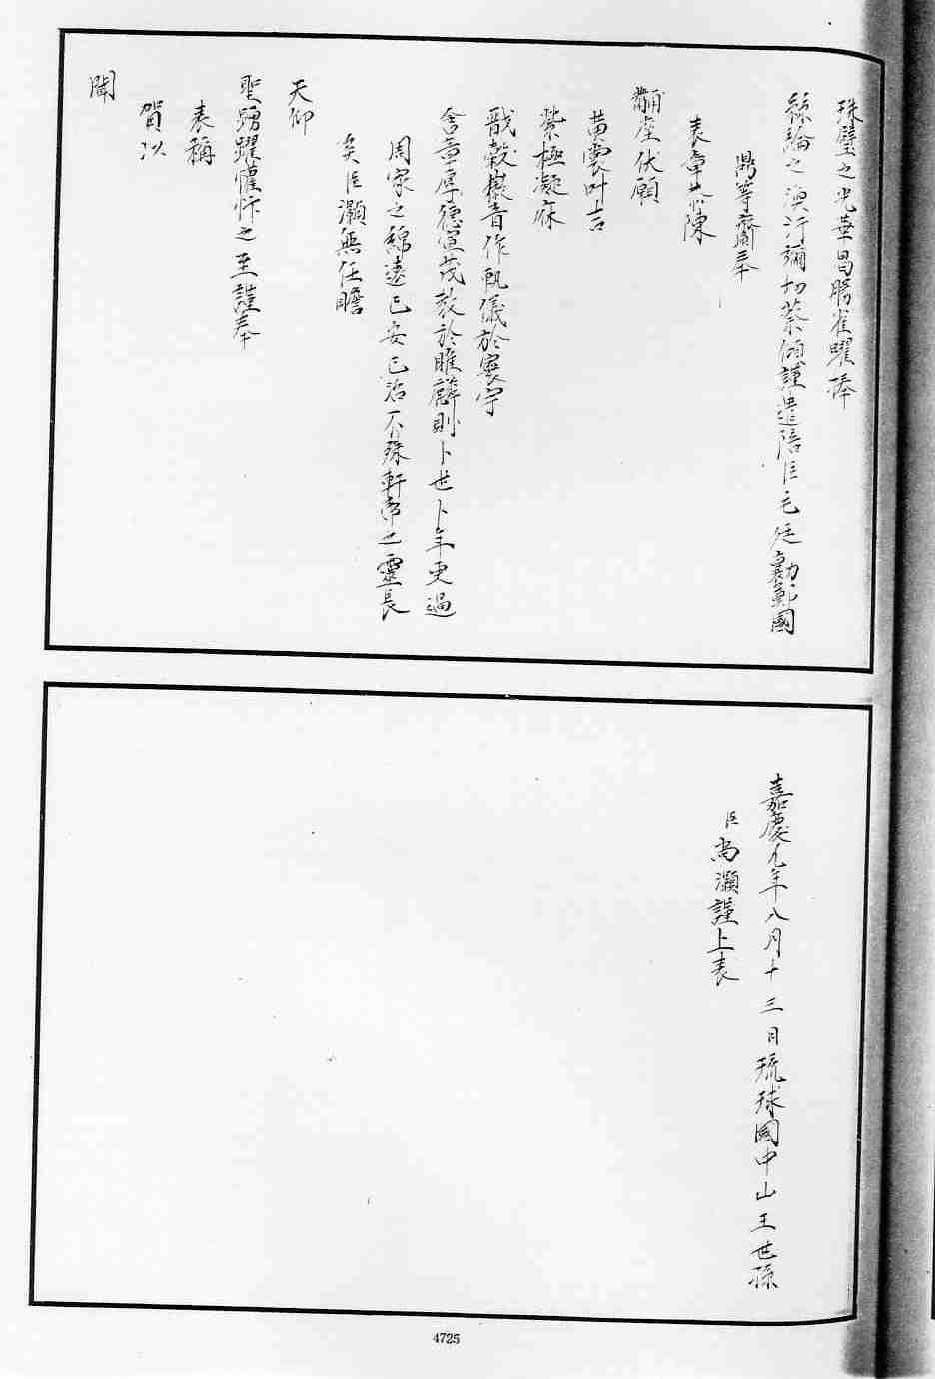 珠璧之光華曷勝雀躍捧
絲綸之渙汗彌切葵傾謹遣陪臣毛廷勷鄭國
鼎等齎奉
表章恭陳
黼座伏願
黃裳叶吉
紫極凝庥
戩穀徽音作軌儀於寰宇
含章厚德宣茂教於睢麟則卜世卜年更過
周家之綿遠已安已治不殊軒帝之靈長
矣臣灝無任瞻
天仰
聖踴躍懽忭之至謹奉
表稱
賀以
聞
嘉慶九年八月十三日琉球國中山王世孫
臣尚灝謹上表
4725